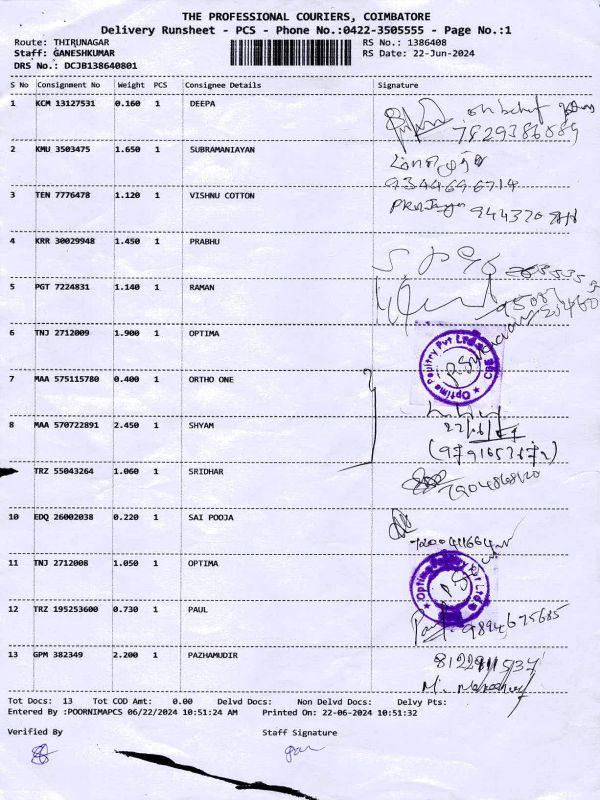 THE PROFESSIONAL COURIERS, COIMBATORE
Delivery Runsheet - PCS - Phone No.:0422-3505555 - Page No.:1
Route: THIRUNAGAR RS No.: 1386408
Staff: GANESHKUMAR RS Date: 22-Jun-2024
DRS No.: DCJB138640801
S No Consignment No Weight PCS Consignee Details Signature
1 KCM 13127531 0.160 1 DEEPA
2 KMU 3503475 1.650 1 SUBRAMANIAYAN
9344696714
3 TEN 7776478 1.120 1 VISHNU COTTON
4 KRR 30029948 1.450 1 PRABHU
5 PGT 7224831 1.140 1 RAMAN
6 TNJ 2712009 1.900 1 OPTIMA
Optima Poultry Pvt Ltd
7 MAA 575115780 0.400 1 ORTHO ONE
8 MAA 570722891 2.450 1 SHYAM
TRZ 55043264 1.060 1 SRIDHAR
10 EDQ 26002038 0.220 1 SAI POOJA
11 TNJ 2712008 1.050 1 OPTIMA
12 TRZ 195253600 0.730 1 PAUL
Paul 9894675685
13 GPM 382349 2.200 1 PAZHAMUDIR
Tot Docs: 13 Tot COD Amt: 0.00 Delvd Docs: Non Delvd Docs: Delvy Pts:
Entered By :POORNIMAPCS 06/22/2024 10:51:24 AM Printed On: 22-06-2024 10:51:32
Verified By Staff Signature